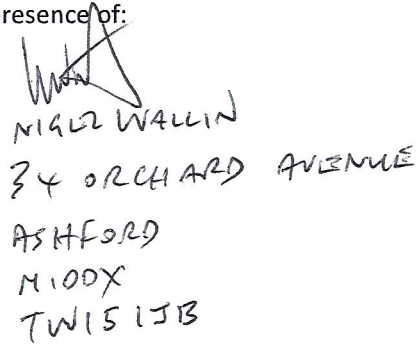 resence of:
NIGEL WALLIN
34 ORCHARD AVENUE
ASHFORD
MIDDX
TW15 1JB